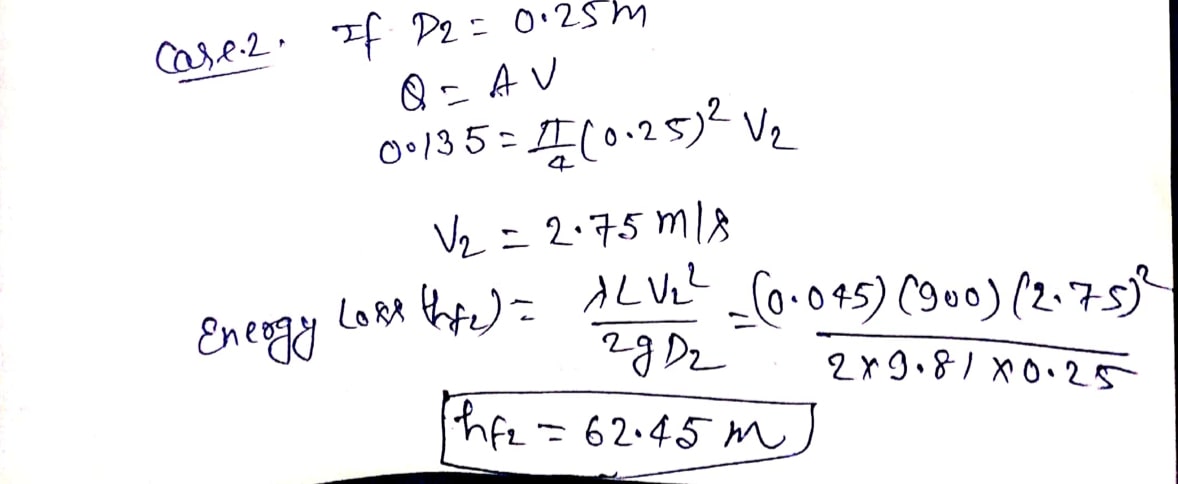 Case.2. If D2 = 0.25m
Q = A V
0.135 = π/4 (0.25)² V2
V2 = 2.75 m/s
Energy Loss (hf2) = λLV2²/2gD2 = (0.045) (900) (2.75)²/2×9.81×0.25
hf2 = 62.45 m